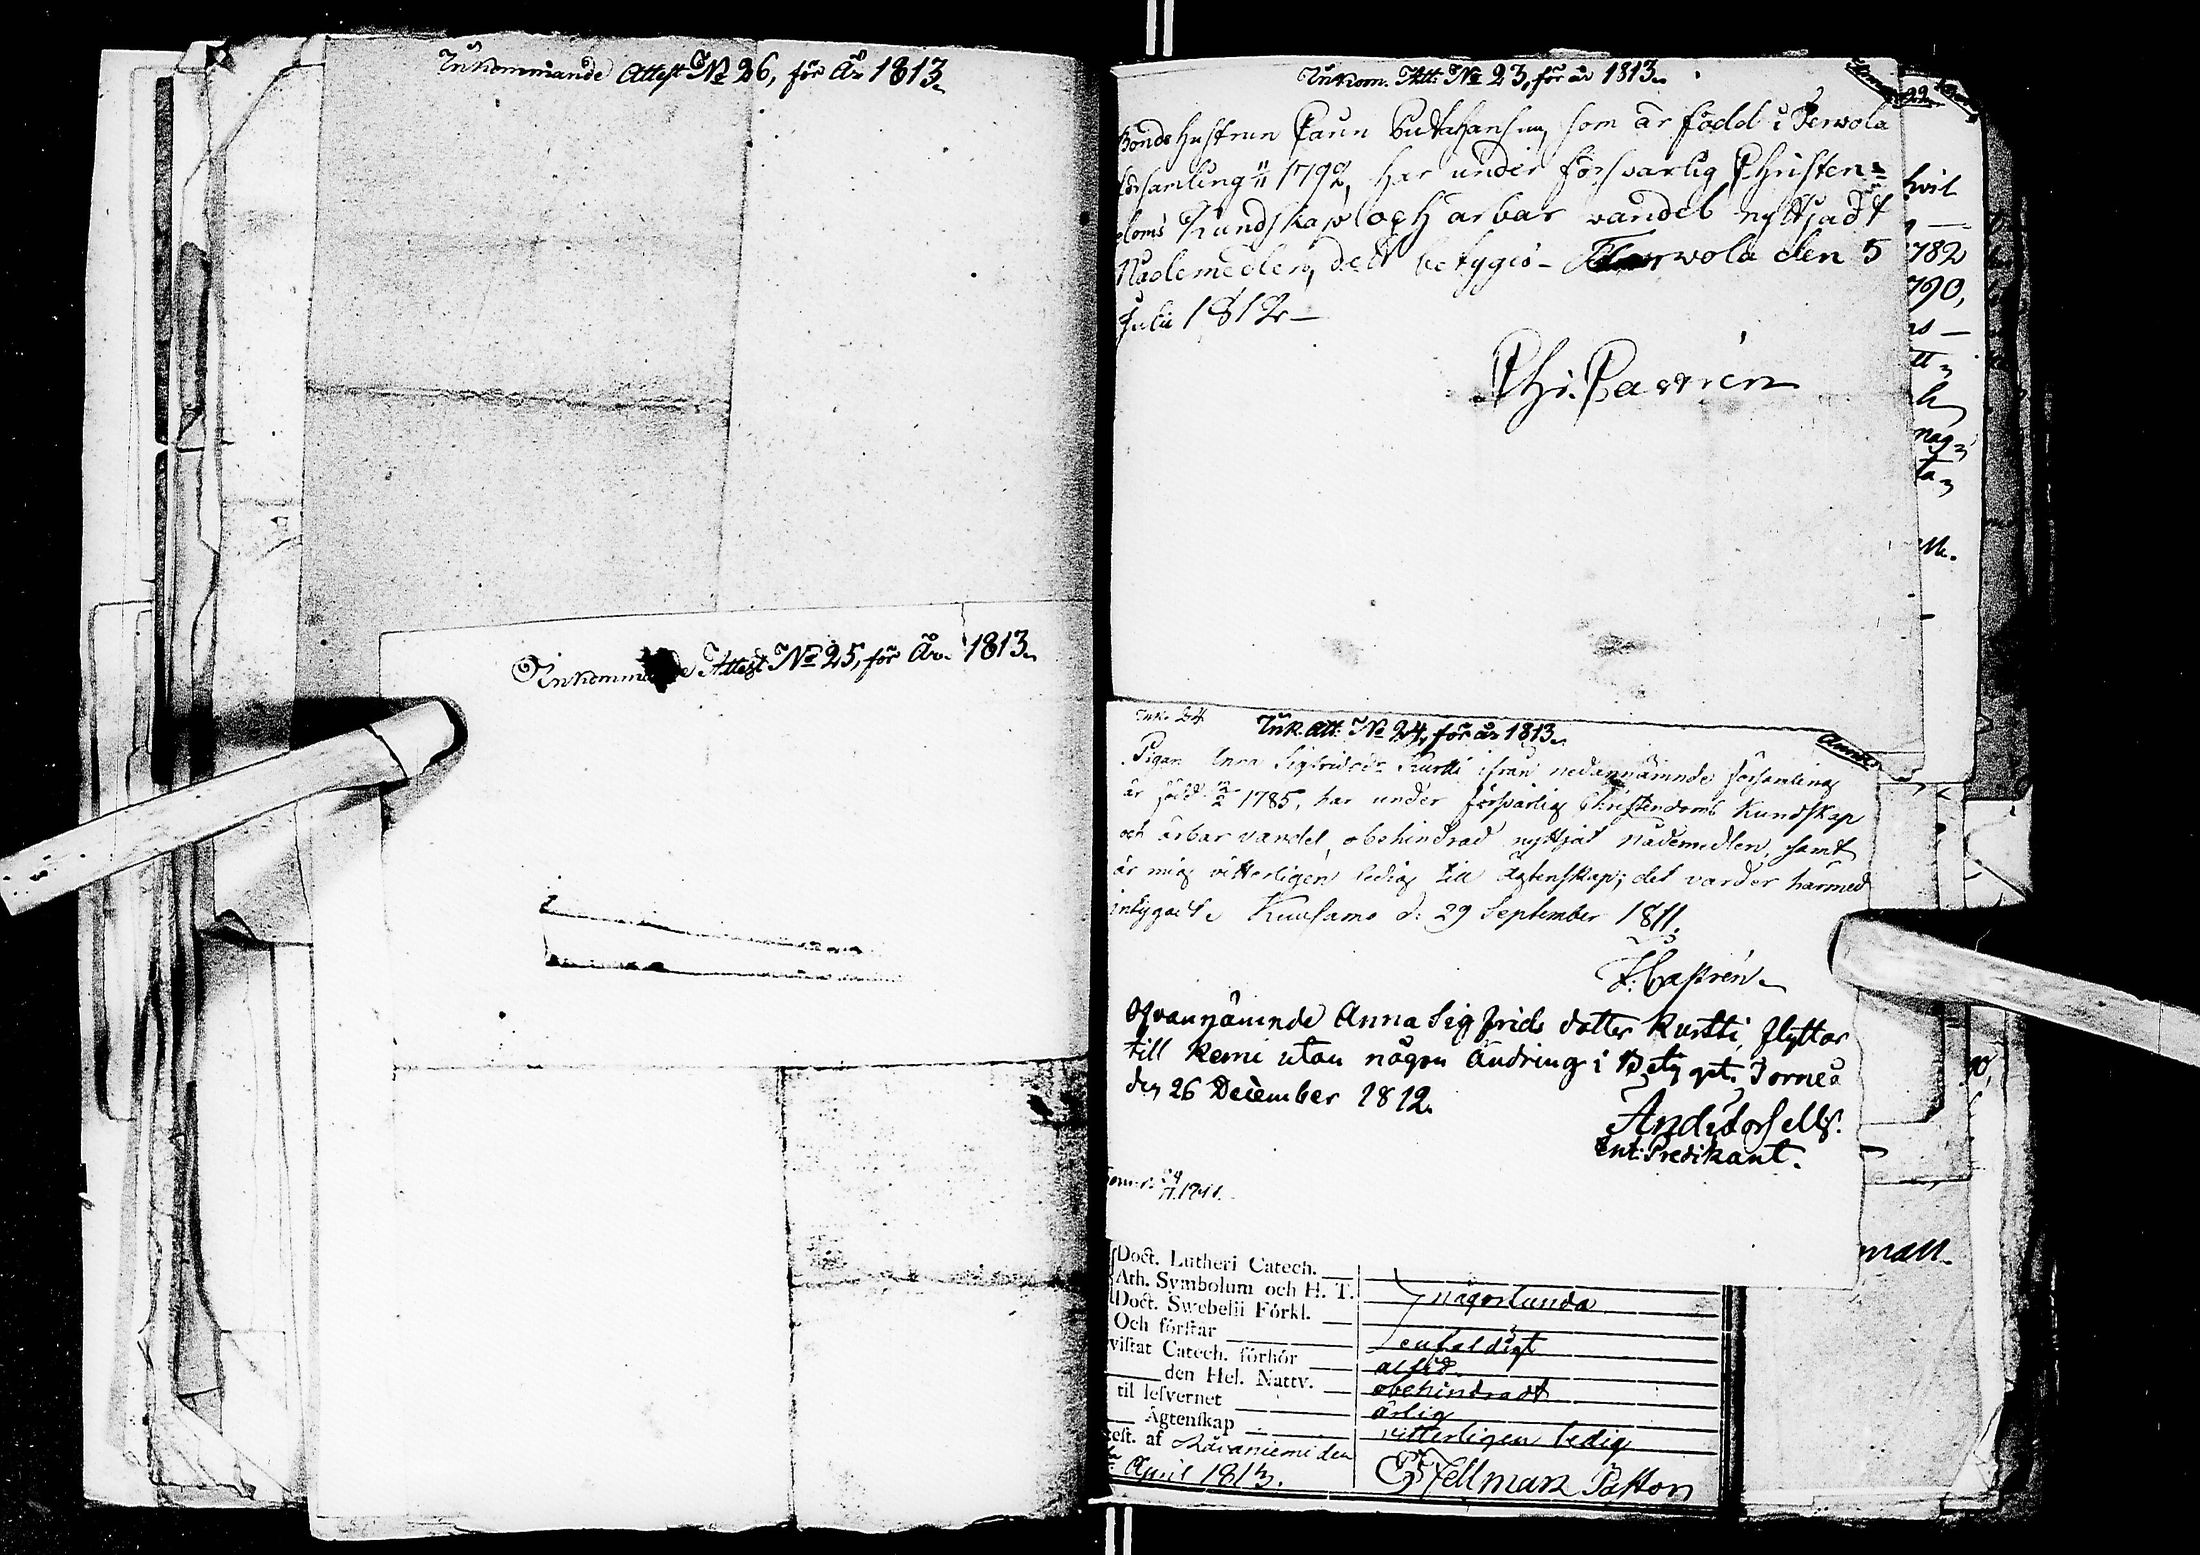 Inkommande Attest No 26, för År 1813.
Inkommande Attest No 25, för År 1813.
Inkom. Att: No 23, för år 1813.
Bonde hustrun som är född i Terwola
församling 1792, har under försvarlig Christen=
doms Kundskap och ärbar vandel nyttjadt
Nådemedlen, det betygas - Terwola den 5
Julii 1812 —
782
790,
Ink. Att. No 24, för år 1813.
Pigan Anna Sigfridsdr Kurtti ifrån nedannämnde församling
är född 1785, har under försvarlig Christendoms Kundskap
och ärbar vandel, obehindrad nyttjat nådemedlen, samt
är mig vitterligen ledig till ägtenskap; det varder härmed
intygadt. Kuusamo d. 29 September 1811.
Castrén
Ofvannämnde Anna Sigfrids dotter Kurtti, flyttar
till Kemi utan någon ändring i Betyget. Torneå
den 26 December 1812.
Predikant.
Doct. Lutheri Catech.
Ath. Symbolum och H. T. någorlunda
Doct. Swebelii Förkl.
Och förstår enfaldigt
vistat Catech. förhör altid
den Hel. Nattv. obehindradt
til lefvernet ärlig
Ägtenskap vitterligen ledig
test. af Råvaniemi den
April 1813. Fellman Pastor